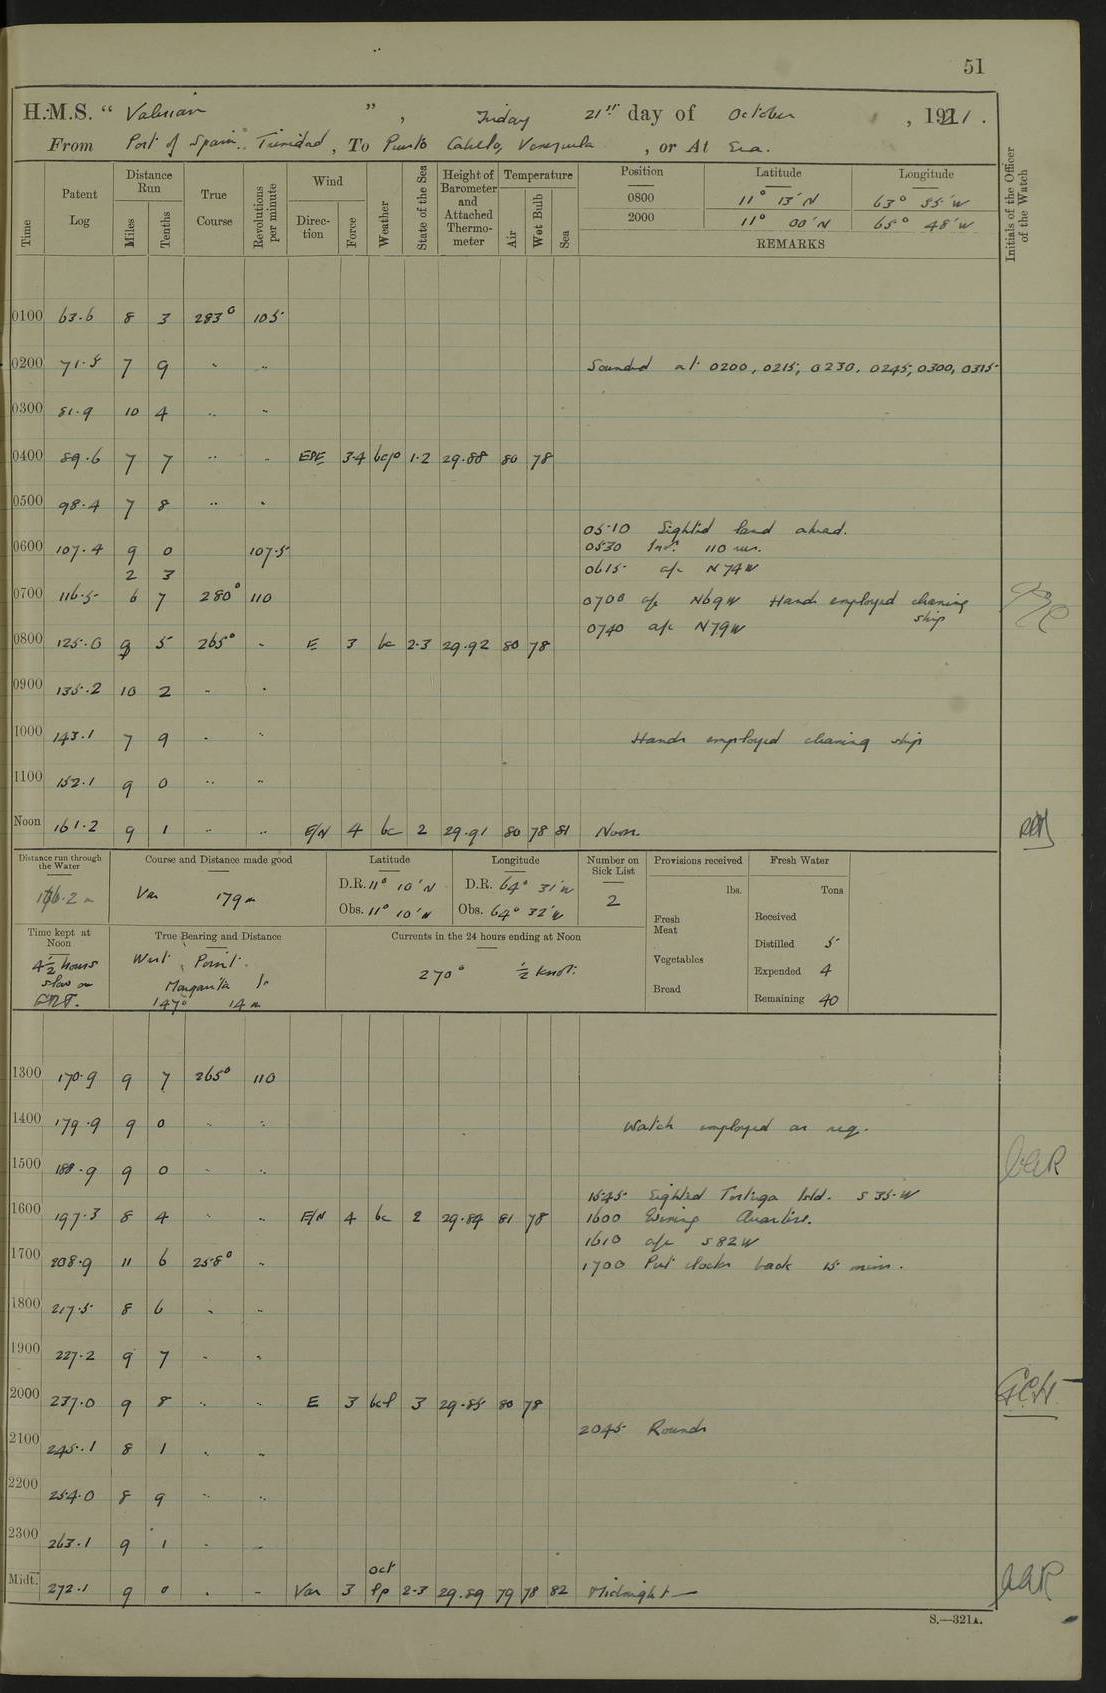 51
H.M.S. " Valerian ", Friday 21st day of October, 1921.
From Port of Spain. Trinidad, To Puerto Cabello, Venezuela, or At Sea.
Time Patent Log Distance Run Miles Tenths True Course Revolutions per minute Wind Direction Force Weather State of the Sea Height of Barometer and Attached Thermometer Temperature Air Wet Bulb Sea Position Latitude Longitude Initials of the Officer of the Watch
0800 11° 13' N 63° 35' W
2000 11° 00' N 65° 48' W
REMARKS
0100 63.6 8 3 283° 105
0200 71.5 7 9 " " Sounded at 0200, 0215, 0230, 0245, 0300, 0315
0300 81.9 10 4 " "
0400 89.6 7 7 " " ESE 3.4 bc/p 1.2 29.88 80 78
0500 98.4 7 8 " "
0510 Sighted land ahead.
0600 107.4 9 0 107.5 0530 Incr. 110 revs.
2 3 0615 a/c N74W
0700 116.5 6 7 280° 110 0700 a/c N69W Hands employed cleaning ship
0740 a/c N79W
0800 125.0 9 5 265° " E 3 bc 2.3 29.92 80 78
0900 135.2 10 2 " "
1000 143.1 7 9 " " Hands employed cleaning ship
1100 152.1 9 0 " "
Noon 161.2 9 1 " " E/N 4 bc 2 29.91 80 78 81 Noon.
Distance run through the Water Course and Distance made good Latitude Longitude Number on Sick List Provisions received Fresh Water
Var 179m D.R. 11° 10' N D.R. 64° 31' W 2 lbs. Tons
Obs. 11° 10' N Obs. 64° 32' W Fresh Meat Received
Time kept at Noon True Bearing and Distance Currents in the 24 hours ending at Noon Distilled 5
4½ hours slow on G.M.T. West Point. Margarita Is 147° 14m 270° ½ knot. Vegetables Expended 4
Bread Remaining 40
1300 170.9 9 7 265° 110
1400 179.9 9 0 " " Watch employed as req.
1500 188.9 9 0 " "
1545 Sighted Tortuga Isld. S 35 W
1600 197.3 8 4 " " E/N 4 bc 2 29.84 81 78 1600 Evening Quarters.
1610 a/c S82W
1700 208.9 11 6 258° " 1700 Put clocks back 15 mins.
1800 217.5 8 6 " "
1900 227.2 9 7 " "
2000 237.0 9 8 " " E 3 bcl 3 29.85 80 78
2045 Rounds
2100 245.1 8 1 " "
2200 254.0 8 9 " "
2300 263.1 9 1 " "
Midt. 272.1 9 0 " " Var 3 oct lp 2.3 29.89 79 78 82 Midnight
S.—321A.